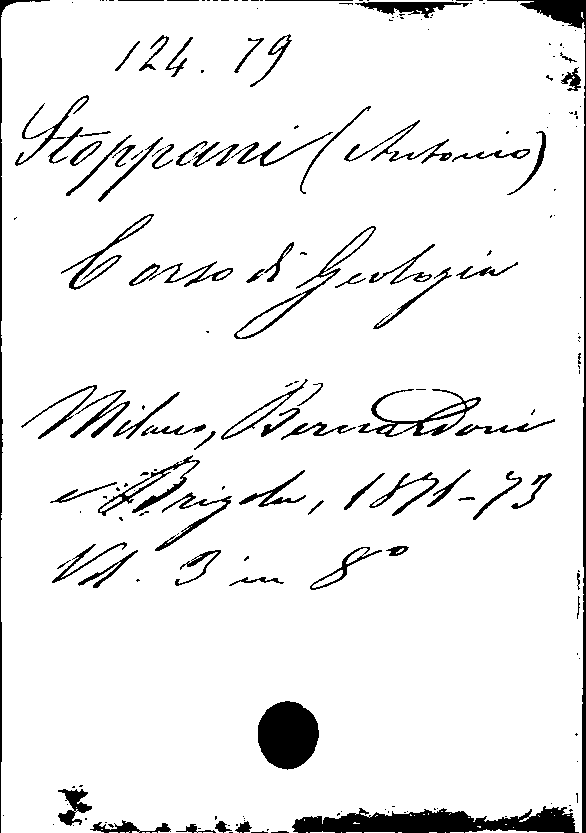 124. 79
Stoppani (Antonio)
Corso di Geologia
Milano, Bernardoni
e Brigola, 1871-73
Vol. 3 in 8º